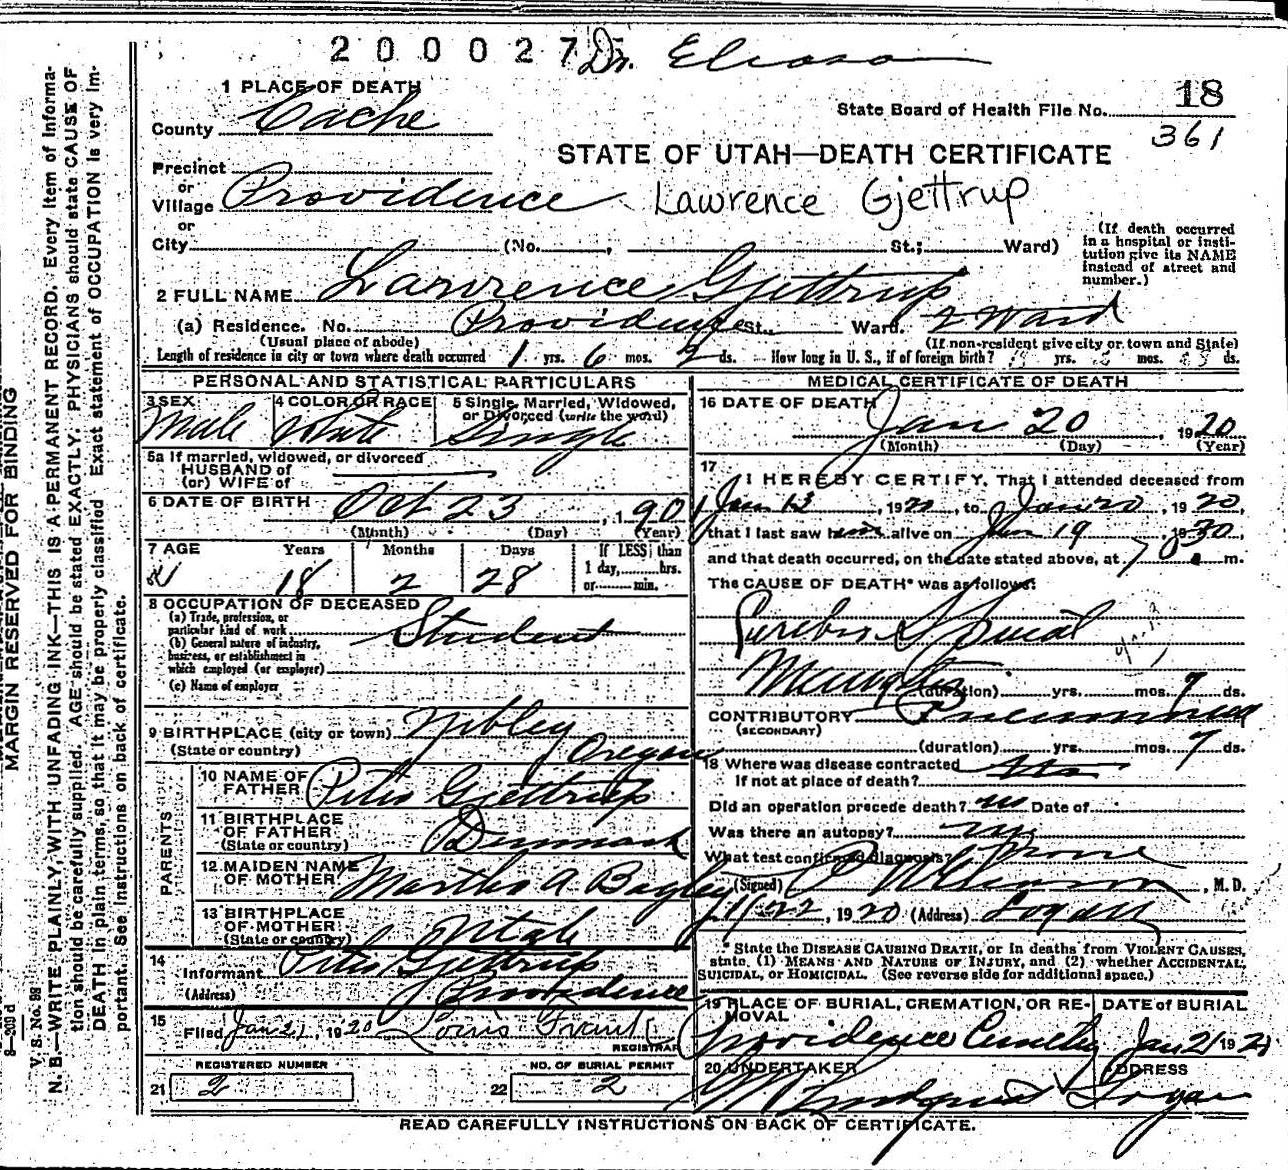 200027
Dr.
1 PLACE OF DEATH
County Cache
State Board of Health File No. 18
361
STATE OF UTAH—DEATH CERTIFICATE
Precinct
or
Village Providence
Lawrence Gjettrup
or
City (No. , St.; Ward)
(If death occurred
in a hospital or insti-
tution give its NAME
instead of street and
number.)
2 FULL NAME Lawrence Gjettrup
(a) Residence. No. Providence St., Ward. 2 Ward
(Usual place of abode) (If non-resident give city or town and State)
Length of residence in city or town where death occurred 1 yrs. 6 mos. 2 ds. How long in U. S., if of foreign birth? yrs. mos. ds.
PERSONAL AND STATISTICAL PARTICULARS
3 SEX
Male
4 COLOR OR RACE
White
5 Single, Married, Widowed,
or Divorced (write the word)
Single
5a If married, widowed, or divorced
HUSBAND of
(or) WIFE of
6 DATE OF BIRTH Oct 23, 190
(Month) (Day) (Year)
7 AGE Years Months Days If LESS than
18 2 28 1 day, hrs.
or min.
8 OCCUPATION OF DECEASED
(a) Trade, profession, or
particular kind of work Student
(b) General nature of industry,
business, or establishment in
which employed (or employer)
(c) Name of employer
9 BIRTHPLACE (city or town) Nibley
(State or country) Oregon
PARENTS
10 NAME OF
FATHER Peter Gjettrup
11 BIRTHPLACE
OF FATHER Denmark
(State or country)
12 MAIDEN NAME
OF MOTHER Martha A Bagley
13 BIRTHPLACE
OF MOTHER Utah
(State or country)
14
Informant Peter Gjettrup
(Address) Providence
15
Filed Jan 21, 1920 Louis Frank
REGISTRAR
REGISTERED NUMBER
21 2
NO. OF BURIAL PERMIT
22 2
MEDICAL CERTIFICATE OF DEATH
16 DATE OF DEATH
Jan 20, 1920
(Month) (Day) (Year)
17
I HEREBY CERTIFY, That I attended deceased from
Jan 13, 1920, to Jan 20, 1920,
that I last saw him alive on Jan 19, 1920,
and that death occurred, on the date stated above, at 7 a m.
The CAUSE OF DEATH* was as follows:
Cerebro Spinal
Meningitis
(duration) yrs. mos. 7 ds.
CONTRIBUTORY Pneumonia
(SECONDARY)
(duration) yrs. mos. 7 ds.
18 Where was disease contracted
If not at place of death?
Did an operation precede death? no Date of
Was there an autopsy? no
What test confirmed diagnosis? none
(Signed) , M. D.
1/22, 1920 (Address) Logan
*State the DISEASE CAUSING DEATH, or in deaths from VIOLENT CAUSES,
state (1) MEANS AND NATURE OF INJURY, and (2) whether ACCIDENTAL,
SUICIDAL, or HOMICIDAL. (See reverse side for additional space.)
19 PLACE OF BURIAL, CREMATION, OR RE-
MOVAL
Providence Cemetery
DATE of BURIAL
Jan 21 192
20 UNDERTAKER
Lindquist
ADDRESS
Logan
READ CAREFULLY INSTRUCTIONS ON BACK OF CERTIFICATE.
MARGIN RESERVED FOR BINDING
V. S. No. 98
N. B.—WRITE PLAINLY, WITH UNFADING INK—THIS IS A PERMANENT RECORD. Every item of informa-
tion should be carefully supplied. AGE should be stated EXACTLY. PHYSICIANS should state CAUSE OF
DEATH in plain terms, so that it may be properly classified. Exact statement of OCCUPATION is very im-
portant. See instructions on back of certificate.